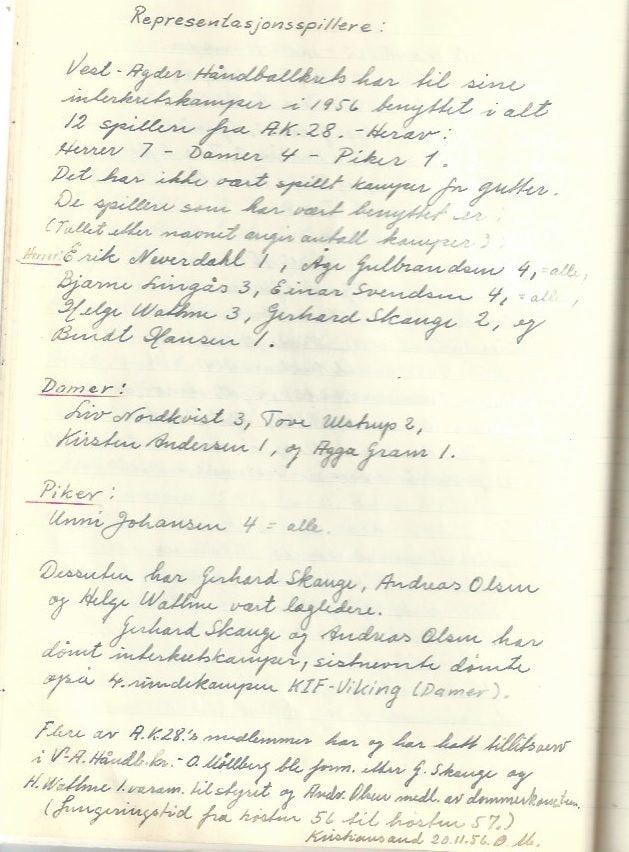 Representasjonsspillere:
Vest-Agder Håndballkrets har til sine
interkretskamper i 1956 benyttet i alt
12 spillere fra A.K.28. - Herav:
Herrer 7 - Damer 4 - Piker 1.
Det har ikke vært spillt kamper for gutter.
De spillere som har vært benyttet er:
(Tallet etter navnet angir antall kamper):
Herrer: Erik Neverdahl 1, Åge Gulbrandsen 4, = alle,
Bjarne Lingås 3, Einar Svendsen 4, = alle,
Helge Wathne 3, Gerhard Skauge 2, og
Berndt Hansen 1.
Damer:
Liv Nordkvist 3, Tove Ulstrup 2,
Kirsten Andersen 1, og Agga Gram 1.
Piker:
Unni Johansen 4 = alle.
Dessuten har Gerhard Skauge, Andreas Olsen
og Helge Wathne vært lagledere.
Gerhard Skauge og Andreas Olsen har
dømt interkretskamper, sistnevnte dømte
også 4. rundekampen KIF-Viking (Damer).
Flere av A.K.28.'s medlemmer har og har hatt tillitsverv
i V-A. Håndb.kr. - O. Møllberg ble form. etter G. Skauge og
H. Wathne 1. varam. til styret og Andr. Olsen medl. av
(Fungeringstid fra høsten 56 til høsten 57.)
Kristiansand 20.11.56. O. M.